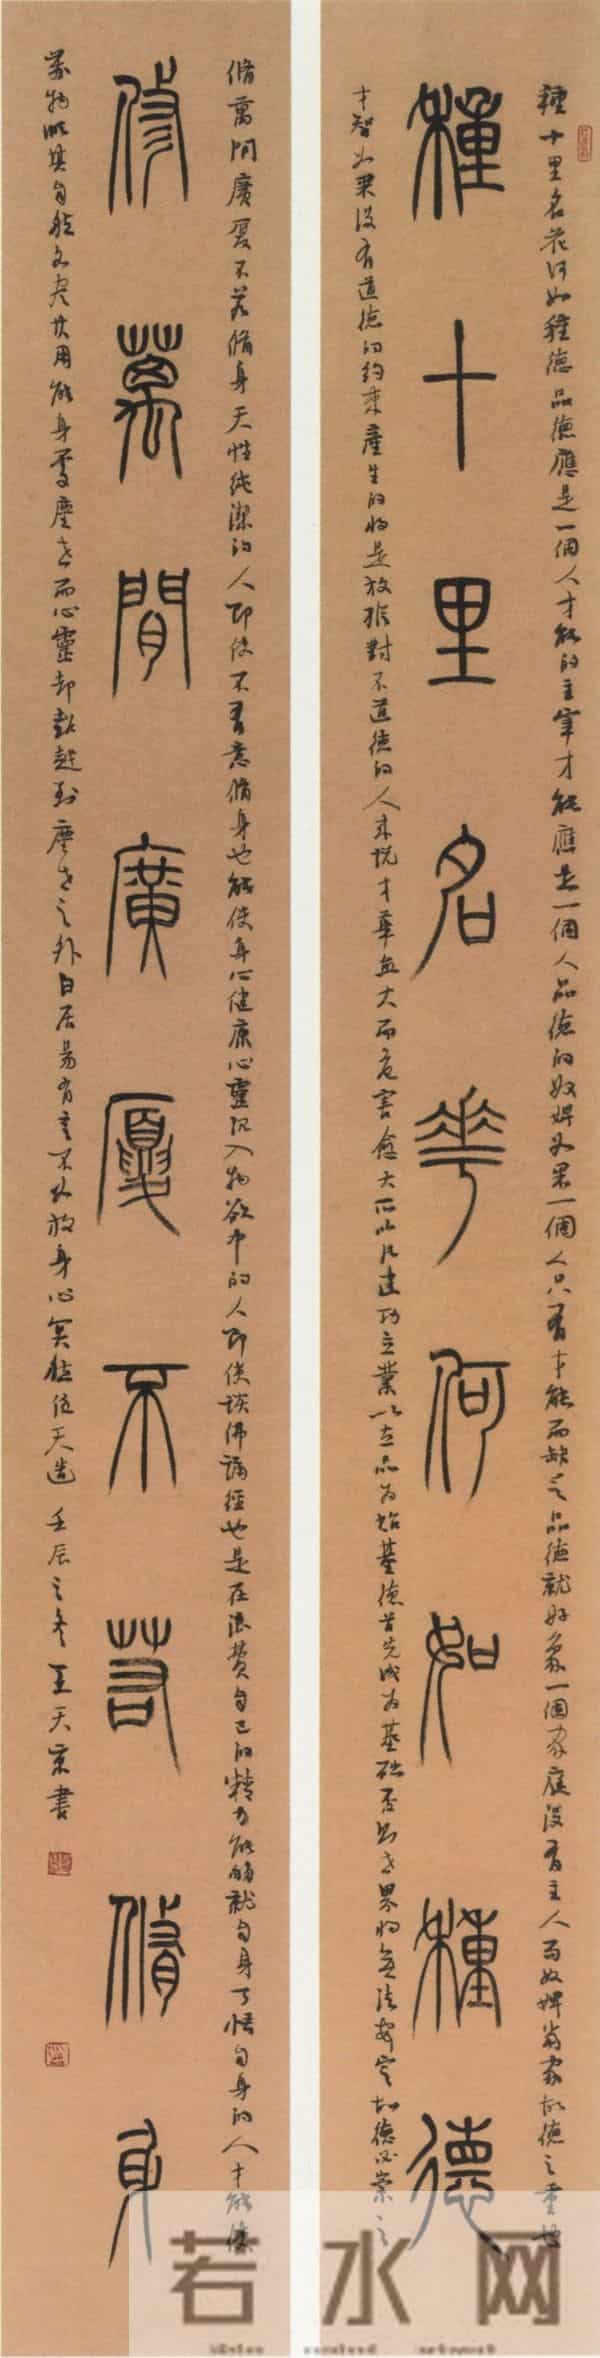 種十里名花何如種德品德應是一個人才能的主宰才能應是一個人品德的奴婢如果一個人只有才能而缺乏品德就好像一個家庭沒有主人而奴婢當家故德之重也
種十里名花何如種德
才智如果沒有道德的約束產生的將是放推對不道德的人來說才華愈大而危害愈大所以凡建功立業以立品為始基德首先成為基礎否則世界將無法安定故德必崇之
脩萬間廣廈不若脩身天性純潔的人即使不著意脩身也能使身心健康心靈沉入物欲中的人即使談佛誦經也是在浪費自己的精力能夠就自身了悟自身的人才能使
修萬間廣廈不若脩身
萬物順其自然各盡其用能身處塵世而心靈卻超越到塵世之外白居易有言不如放身心冥然任天造 壬辰之冬 王天京書
若水网